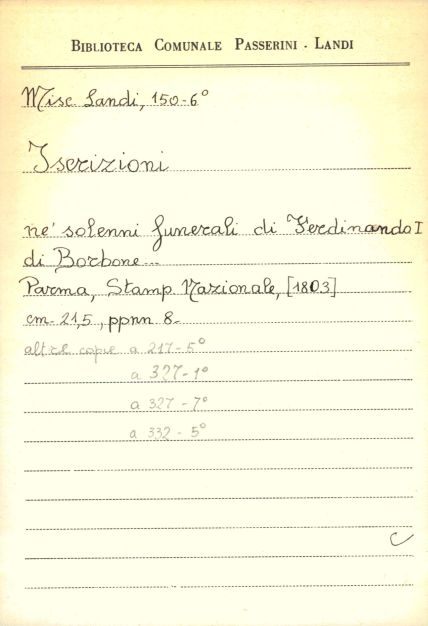 BIBLIOTECA COMUNALE PASSERINI - LANDI
Misc. Landi, 150-6°
Iscrizioni
ne' solenni funerali di Ferdinando I
di Borbone...
Parma, Stamp Nazionale, [1803]
cm. 21,5, ppnn 8.
altre copie a 217-5°
a 327-1°
a 327-7°
a 332-5°
C